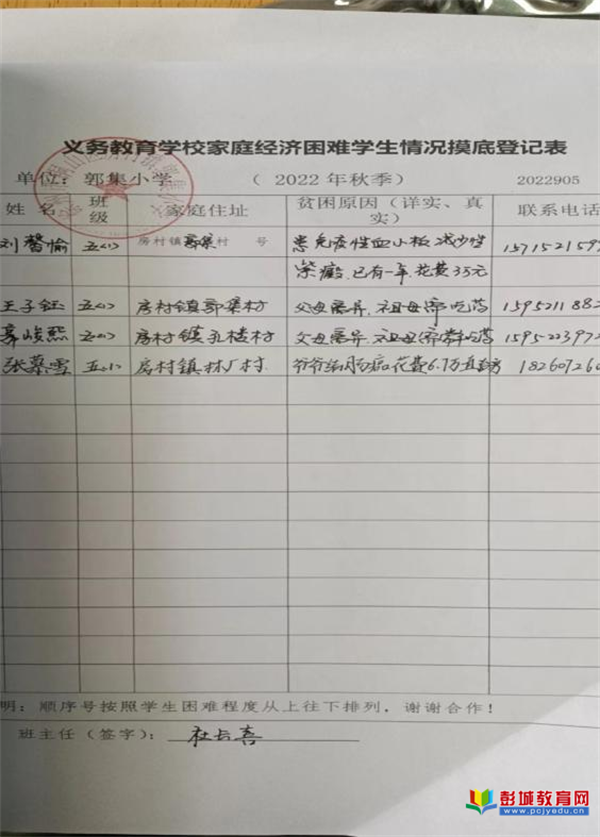 义务教育学校家庭经济困难学生情况摸底登记表
单位: 郭集小学 ( 2022 年秋季) 2022905
姓 名 班级 家庭住址 贫困原因(详实、真实) 联系电话
刘馨愉 五(1) 房村镇郭集村 号 患免疫性血小板减少性 1571521599
紫癜,已有一年,花费3万元
王子钰 五(1) 房村镇郭集村 父母离异,祖母常吃药 159521188
五(1) 房村镇孔楼村 父母离异,祖母常吃药 1595223972
张慕雪 五(1) 房村镇林厂村 爷爷 肠癌花费6.7万 18260726
明: 顺序号按照学生困难程度从上往下排列, 谢谢合作!
班主任(签字): 杜长喜
彭城教育网
www.pcjyedu.cn